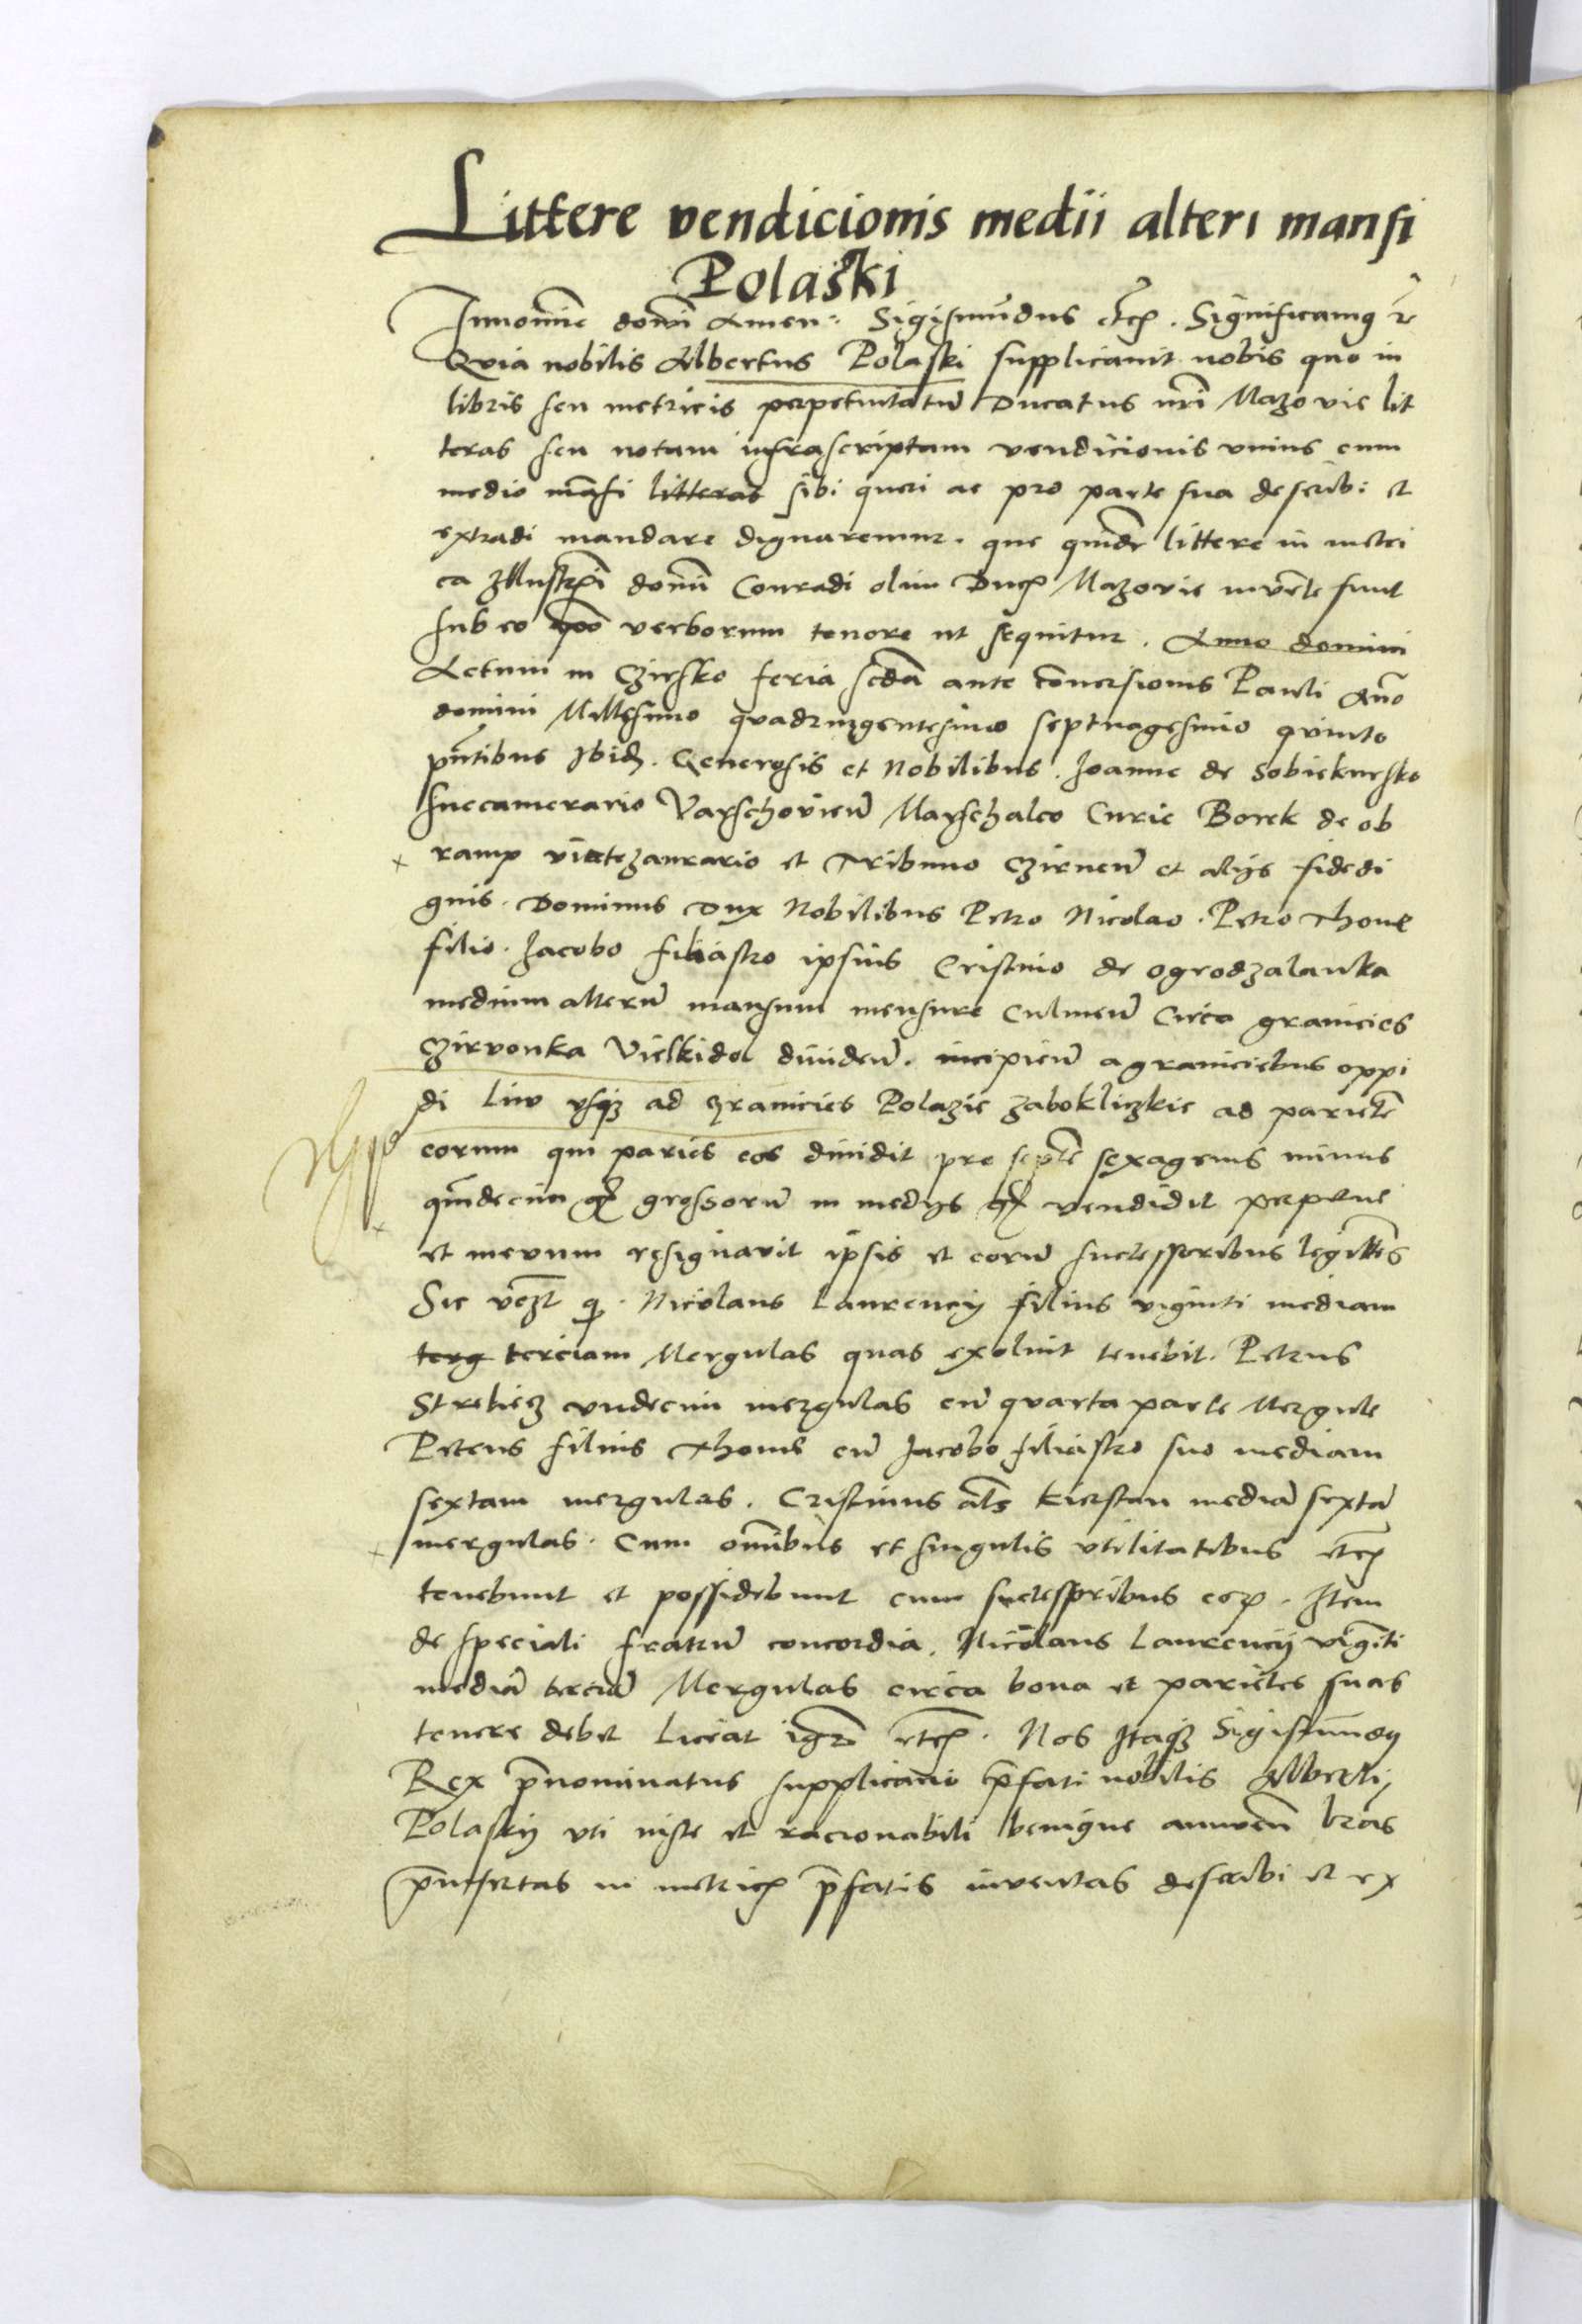 Littere vendicionis medii alteri mansi
Polaski
In nomine domini Amen. Sigismūdus etcꝫ. Significamꝰ
Qvia nobilis Albertus Polaski supplicavit nobis quo in
libris seu metricis perpetuitatū Ducatus nr̄i Mazovie lit
teras seu notam infrascriptam vendicionis vnius cum
medio māsi litteras sibi queri ac pro parte sua describi et
extradi mandare dignaremur. que quidē littere in metri
ca Illustris domī Conradi olim Ducꝭ Mazovie invēte sunt
sub eo verborum tenore ut sequitur. Anno domini
Actum in Czirsko feria scdā ante conversionis Pauli Año
domini Millesimo qvadringentesimo septuagesimo qvinto
pñtibus Ibidē. Generosis et Nobilibus. Joanne de Sobiekursko
succamerario Varschoviēn Marschalco Curie Borek de ob
ramp vicetezaurario et Tribuno Czirnēn et alijs fidedi
gnis. Dominus Dux Nobilibus Petro Nicolao. Petro Thome
filio. Jacobo filiastro ipsius Cristino de ogrodzalanka
medium alterū mansum mensure Culmeñ Circa granicies
Czirvonka Vielkidol dividēn. incipieñ a graniciebus oppi
di Liw vsqꝫ ad granicies Polazie zaboklizkie ad parietē
eorum qui paries eos dividit pro septē sexagenis minus
quīdecim grossorū in medijs vendidit perpetue
et mevum resignavit ipsis et eorū successoribus legittīs
Sic vȝ ꝙ. Nicolaus Laurencij filius viginti mediam
terg terciam Mergulas quas exolvit tenebit. Petrus
Strebicz vndecim mergulas cū qvarta parte Mergule
Petrus filius Thome cū Jacobo filiastro suo mediam
sextam mergulas. Cristinus als Kirstan mediā sextā
mergulas. Cum omībus et singulis vtilitatibus etcꝫ
tenebunt et possidebunt cum successoribus eorꝫ. Item
de speciali fratrū concordia. Nicolaus Laurencij vigīti
mediā terciā Mergulas circa bona et parietes suas
tenere debet Liceat igr̄ etcꝫ. Nos Itaqꝫ Sigismūdꝰ
Rex p̄nominatus supplicacioni p̄fati nobilis Alberti
Polaskij vti iuste et racionabili benigne annuēn lr̄as
p̄insertas in metricꝭ p̄fatis inventas describi et ex